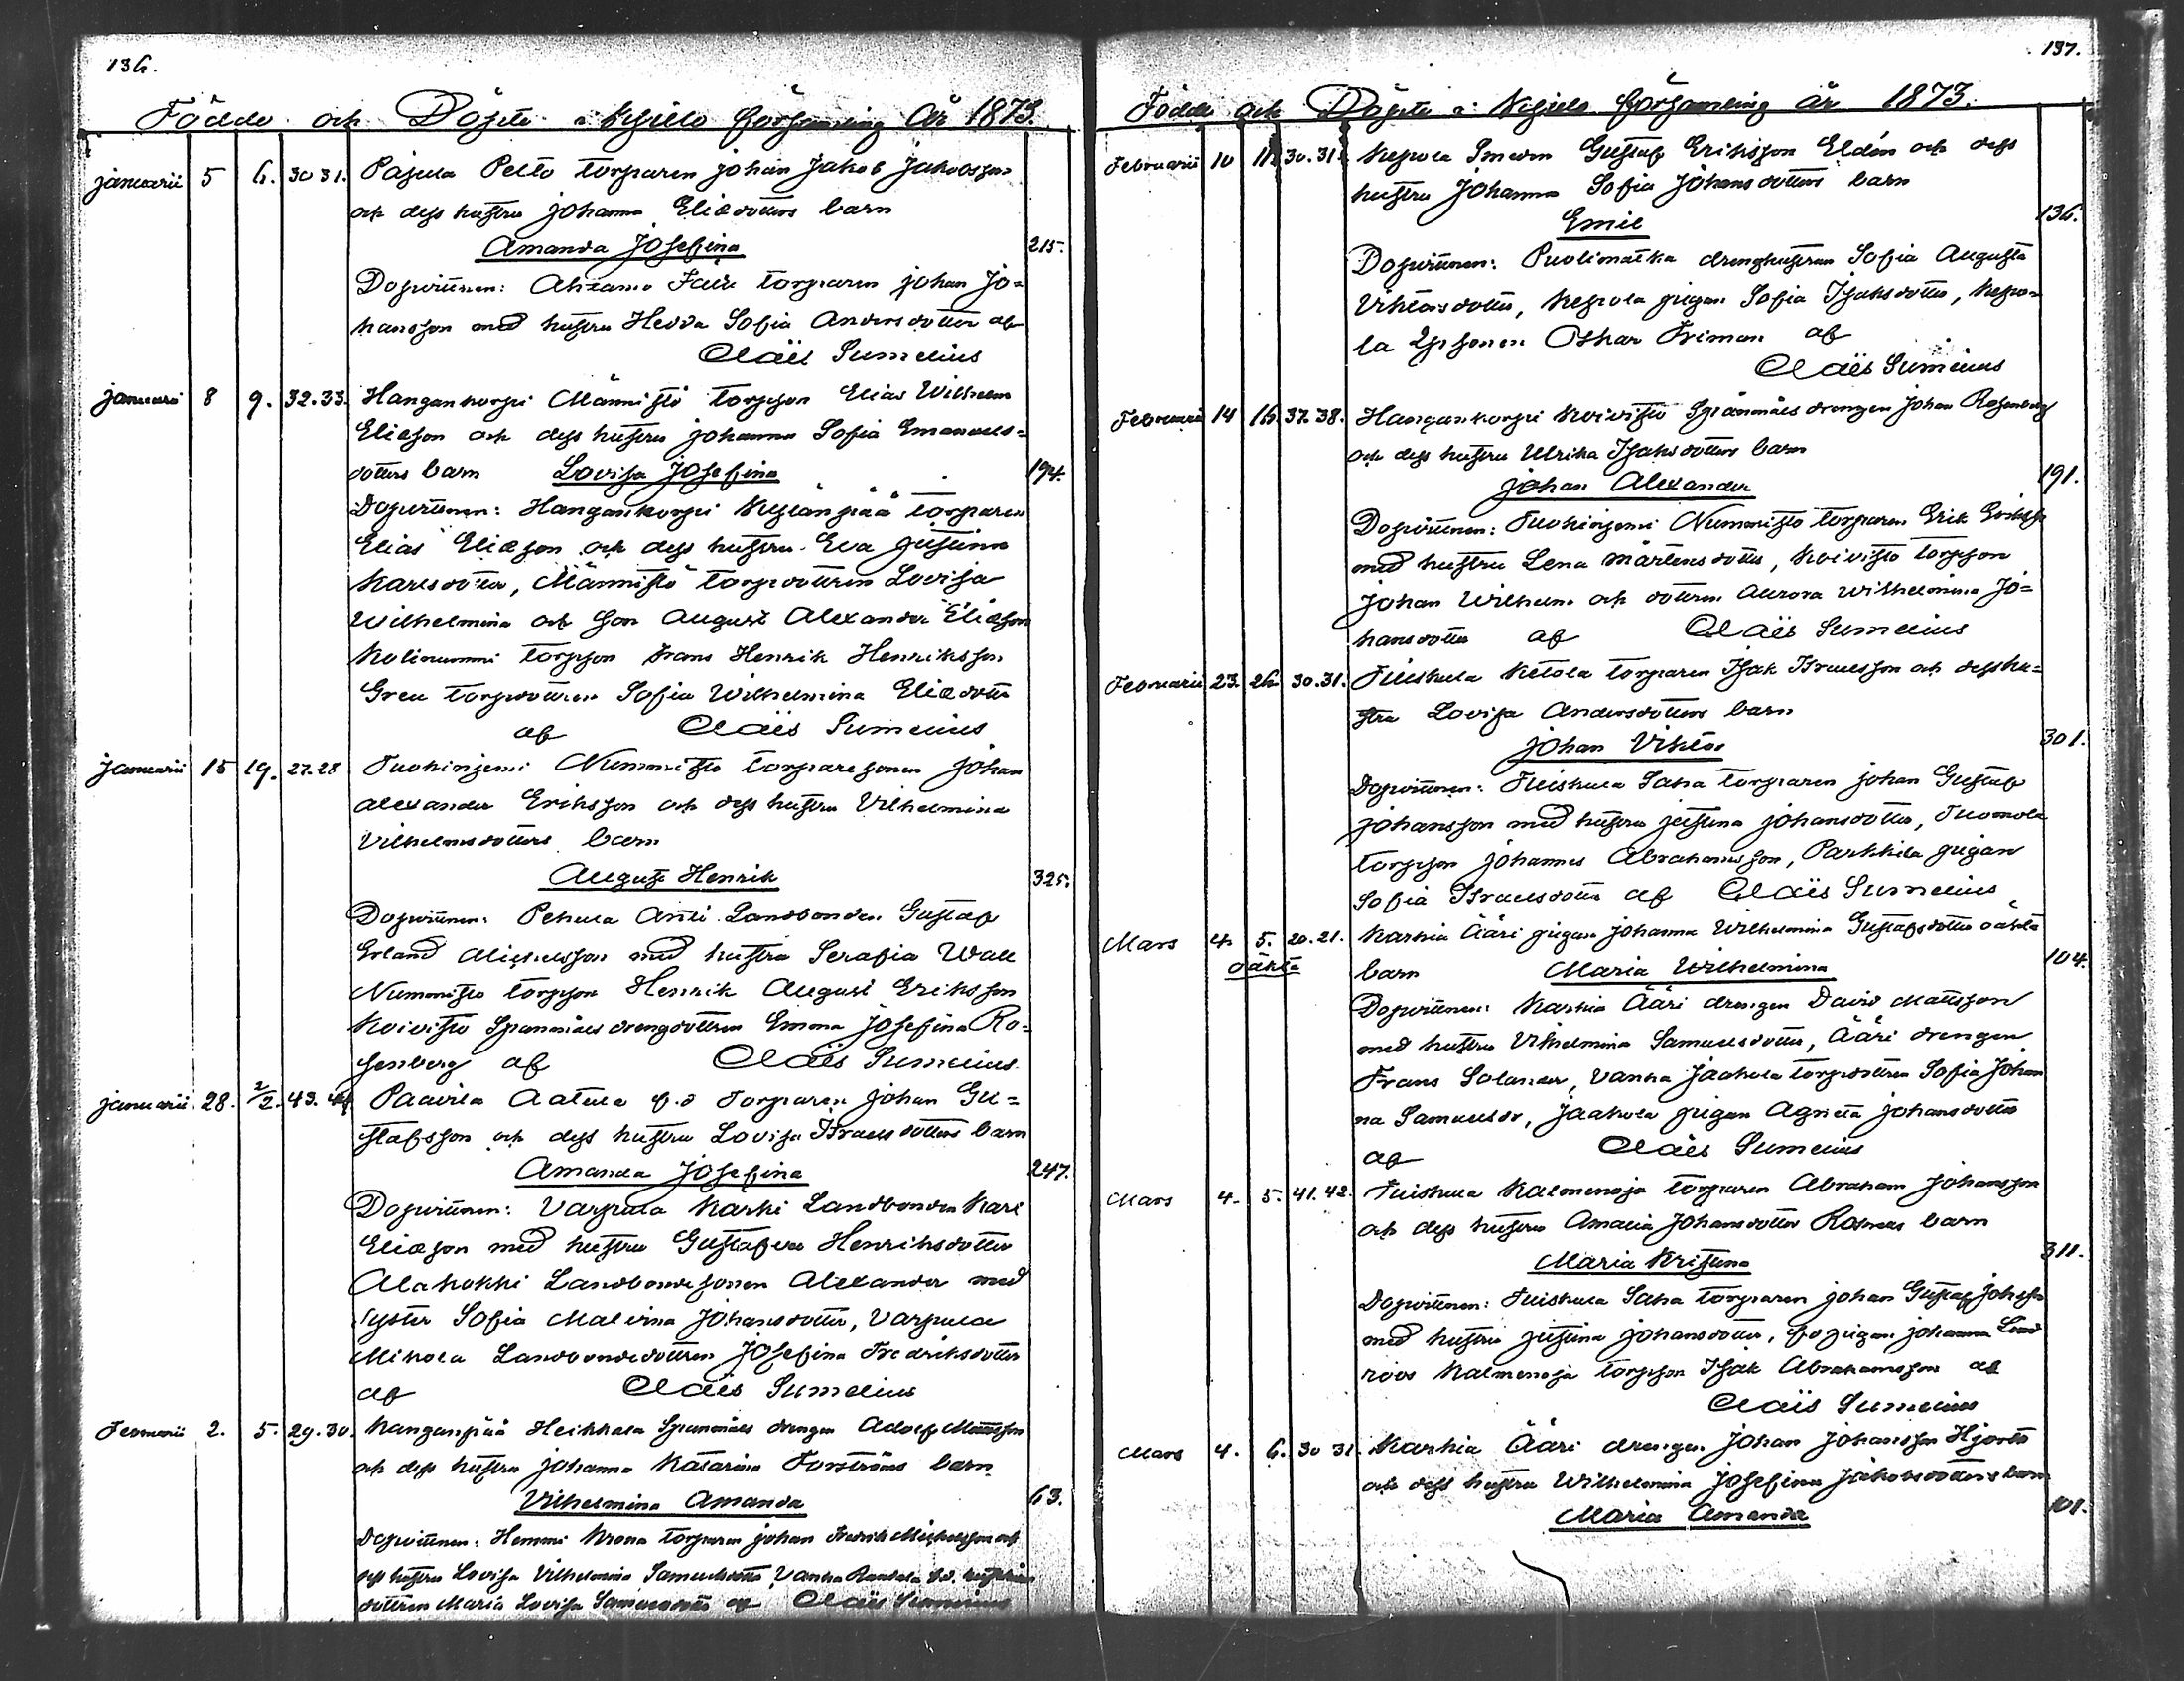 136.
Födde och Döpte i Kjulo församling År 1873.
Januarii 5 6. 30 31. Pajula Pelto torparen Johan Jakob Jakobsson
och dess hustru Johanna Eliædotters barn
Amanda Josefina 215.
Dopvittnen: torparen Johan Jo=
hansson med hustru Hedda Sofia Andersdotter af
Claës Sumelius
Januarii 8 9. 32.33. Hangankorpi Männistö torpson Elias Wilhelm
Eliæson och dess hustru Johanna Sofia Emanuels=
dotters barn Lovisa Josefina 194.
Dopvittnen: Hangankorpi Kylänpää torparen
Elias Eliæson och dess hustru Eva Justina
Karlsdotter, Männistö torpdottren Lovisa
Wilhelmina och son August Alexander Eliæson
Kolinummi torpson Frans Henrik Henriksson
torpdottren Sofia Wilhelmina Eliædotter
af Claës Sumelius
Januarii 15 19. 27.28 Tuohiniemi Nummisto torparesonen Johan
Alexander Eriksson och dess hustru Vilhelmina
Vilhelmsdotters barn
August Henrik 325.
Dopvittnen: Pehula Antti Landbonden Gustaf
Erland Michelsson med hustru Serafia Wall
Nummisto torpson Henrik August Eriksson
Koivisto Spanmåls drengdottren Emma Josefina Ro=
senberg af Claës Sumelius
Januarii 28. 2/2. 43. 44 Paavila Aatula f.d Torparen Johan Gu=
stafsson och dess hustru Lovisa Israels dotters barn
Amanda Josefina 247.
Dopvittnen: Varpula Karhi Landbonden Karl
Eliæson med hustru Gustafva Henriksdotter
Alahokki Landbondesonen Alexander med
syster Sofia Malvina Johansdotter, Varpula
Mikola Landbondedottren Josefina Fredriksdotter
af Claës Sumelius
Februarii 2. 5. 29.30. Kanganpää Heikkala Spanmåls drengen Adolf Mattsson
och dess hustru Johanna Katarina Forströms barn
Vilhelmina Amanda 63.
Dopvittnen: Hemmi Krona torparen Johan Fredrik Michelsson och
dess hustru Lovisa Vilhelmina Samuelsdotter, Vanha
dottren Maria Lovisa Samuelsdotter af Claës Sumelius
137.
Födde och Döpte i Kjulo församling år 1873.
Februarii 10 11. 30.31. Kepola Smeden Gustaf Eriksson Eldén och dess
hustru Johanna Sofia Johansdotters barn
Emil 136.
Dopvittnen: Puolimatka drenghustrun Sofia Augusta
Viktorsdotter, Kepola pigan Sofia Isaksdotter, Kepo=
la Oskar Friman af
Claës Sumelius
Februarii 14 16. 37.38. Hangankorpi Koivisto Spanmåls drengen Johan Rosenberg
och dess hustru Ulrika Isaksdotters barn
Johan Alexander 191.
Dopvittnen: Tuohiniemi Nummisto torparen Erik Eriksson
med hustru Lena Mårtensdotter, Koivisto torpson
Johan Wilhelm och dottren Aurora Wilhelmina Jo=
hansdotter af Claës Sumelius
Februarii 23. 26. 30.31. Tuiskula Ketola torparen Isak Israelsson och dess hu=
stru Lovisa Andersdotters barn
Johan Viktor 301.
Dopvittnen: Tuiskula Saha torparen Johan Gustaf
Johansson med hustru Justina Johansdotter, Tuomola
torpson Johannes Abrahamsson, Parkkila pigan
Sofia Israelsdotter af Claës Sumelius
Mars 4 5. 20.21. Karhia Ääri pigan Johanna Wilhelmina Gustafsdotters oäkta
oäkta barn Maria Wilhelmina 104.
Dopvittnen: Karhia Ääri drengen David Mattsson
med hustru Vilhelmina Samuelsdotter, Ääri drengen
Frans Solander, Vanha Jaakola torpdottren Sofia Johan
na Samuelsdr, Jaakola pigan Agneta Johansdotter
af Claës Sumelius
Mars 4. 5. 41.42. Tuiskula Kalmenoja torparen Abraham Johansson
och dess hustru Amalia Johansdotter barn
Maria Kristina 311.
Dopvittnen: Tuiskula Saha torparen Johan Gustaf Johansson
med hustru Justina Johansdotter, pigan Johanna Lind
roos Kalmenoja torpson Isak Abrahamsson af
Claës Sumelius
Mars 4. 6. 30 31. Karhia Ääri drengen Johan Johansson Hjorth
och dess hustru Wilhelmina Josefina Jakobsdotters barn
Maria Amanda 101.